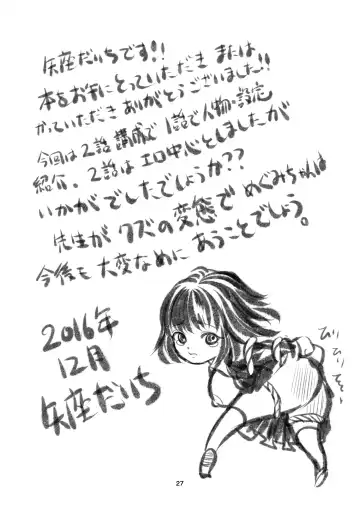 矢座だいちです!!
本をお手にとっていただき または
かっていただき ありがとうございました!!
今回は2話構成で 1話で人物・設定
紹介、2話はエロ中心としましたが
いかがでしたでしょうか??
先生が クズの変態で めぐみちゃんは
今後も 大変なめに あうことでしょう。
2016年
12月
矢座だいち
ひり
ひり
27